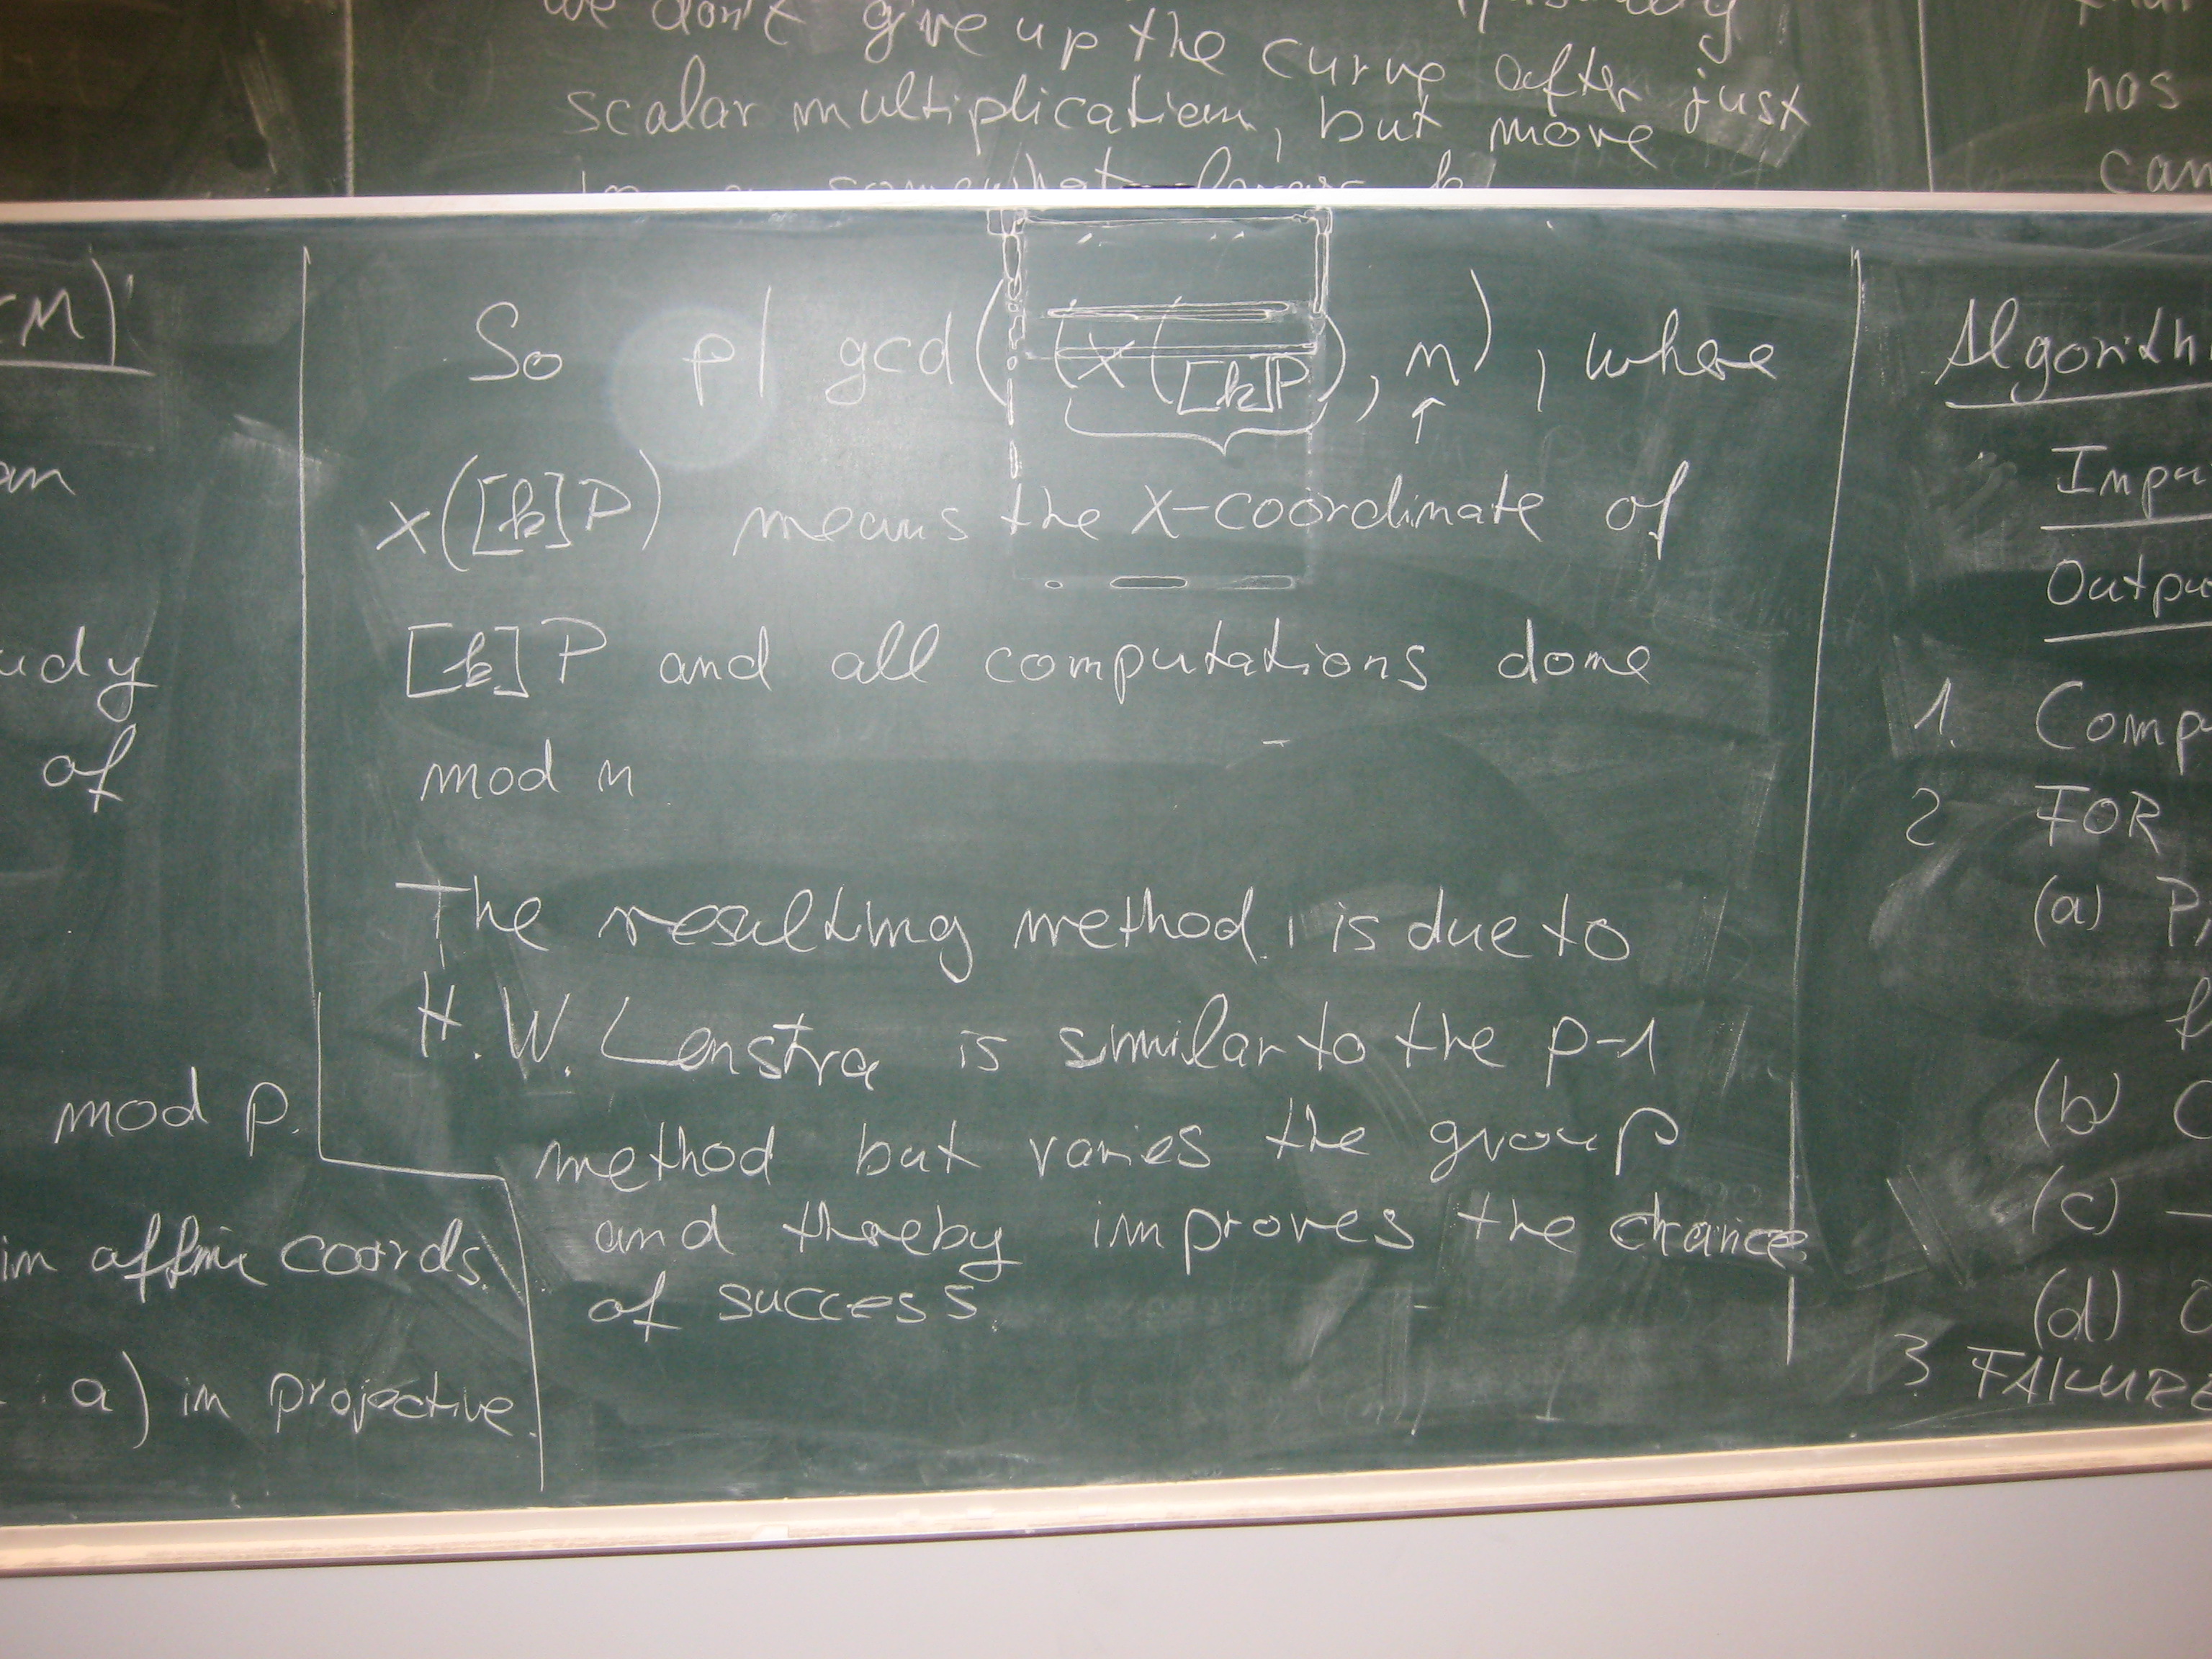 we don't give up the curve after just
scalar multiplication, but move
to a somewhat larger k
has
can
So p | gcd((x([k]P), n), where
x([k]P) means the X-coordinate of
[k]P and all computations done
mod n
The resulting method, is due to
H.W. Lenstra is similar to the p-1
method but varies the group
and thereby improves the chance
of success.
an
udy
of
mod p.
in affine coords.
a) in projective.
Algorith
Inpu
Outpu
1. Comp
2 FOR
(a) P
(b) C
(c)
(d)
3. FAILURE